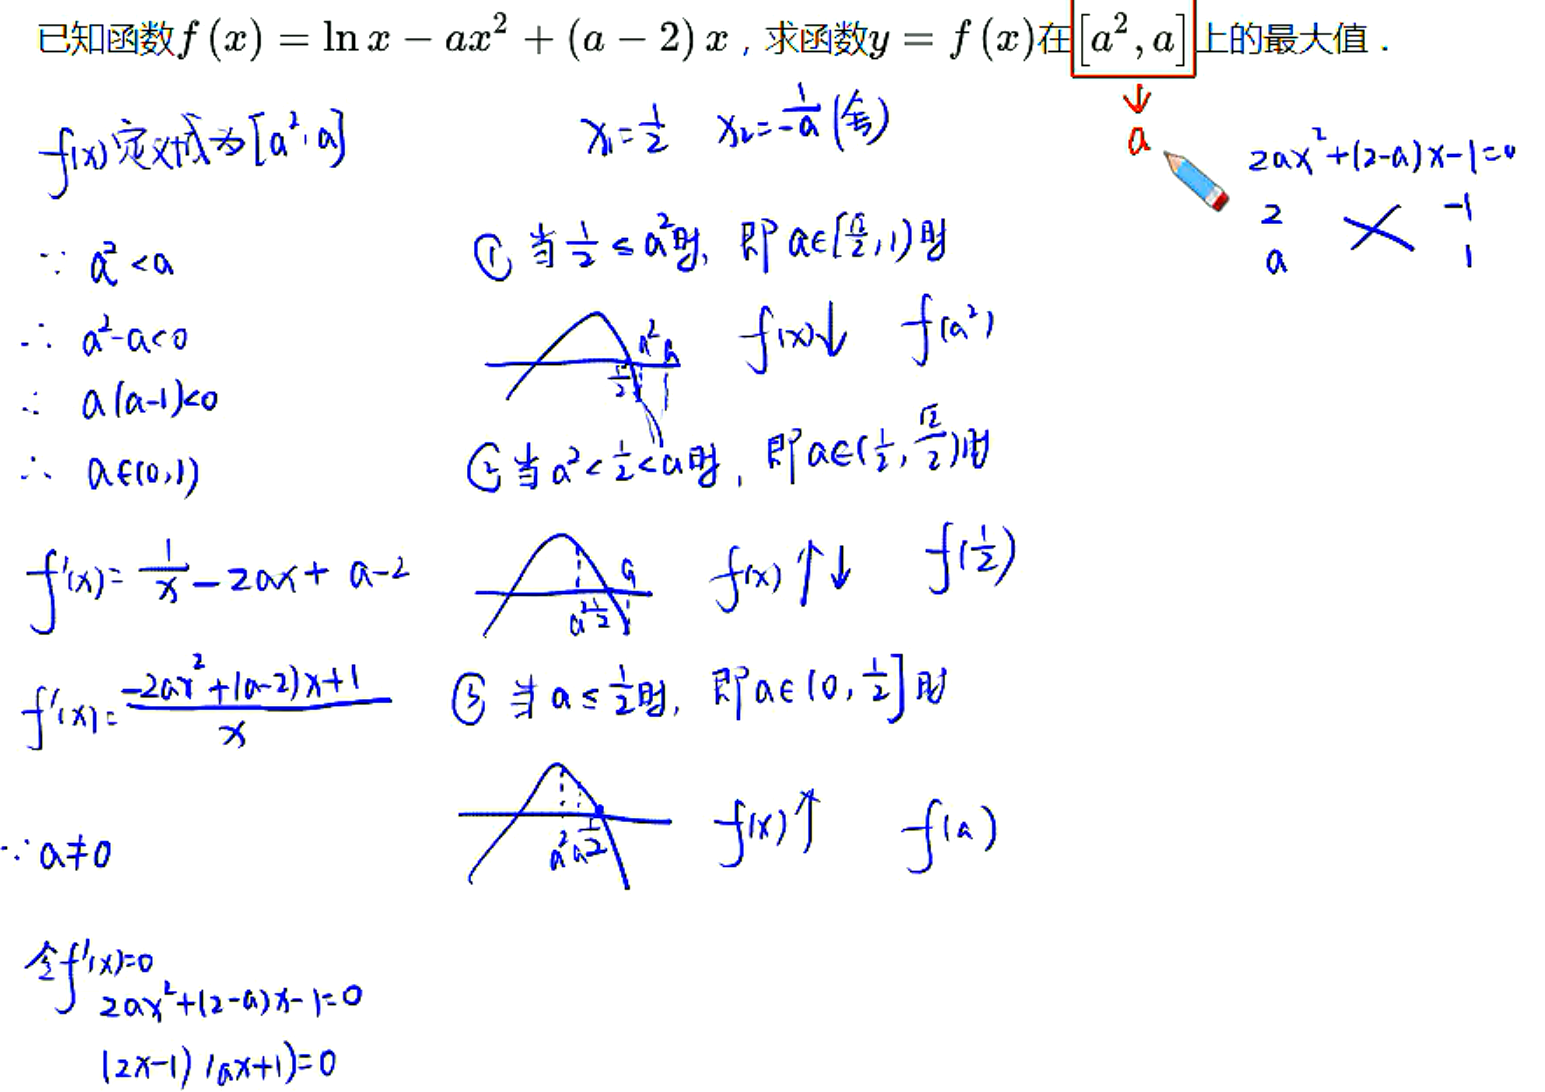 已知函数f(x)=ln x−ax²+(a−2)x，求函数y=f(x)在[a²,a]上的最大值．
f(x)定义域为[a²,a]
∵ a²<a
∴ a²-a<0
∴ a(a-1)<0
∴ a∈(0,1)
f'(x)=1/x-2ax+a-2
f'(x)=(-2ax²+(a-2)x+1)/x
∵a≠0
令f'(x)=0
2ax²+(2-a)x-1=0
(2x-1)(ax+1)=0
x₁=1/2 x₂=1/-a(舍)
①当1/2≤a²时, 即a∈[√2/2,1)时
a² a
1/2
f(x)↓ f(a²)
②当a²<1/2<a时, 即a∈(1/2,√2/2)时
a
a² 1/2
f(x)↑↓ f(1/2)
③当a≤1/2时, 即a∈(0,1/2]时
a² a 1/2
f(x)↑ f(a)
↓
a
2ax²+(2-a)x-1=0
2 -1
a 1